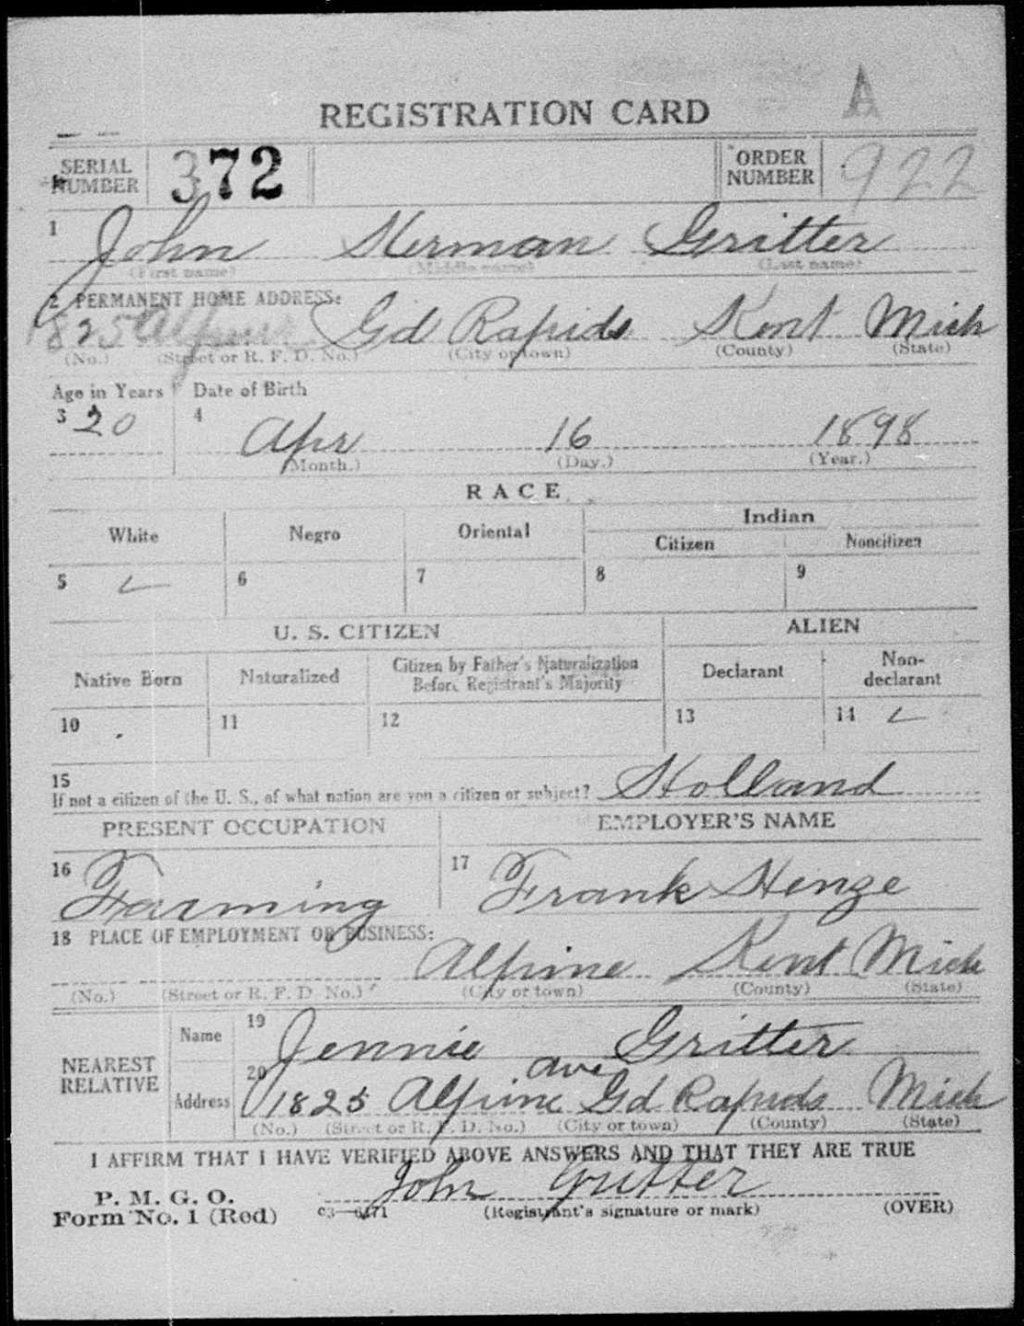 A
REGISTRATION CARD
SERIAL NUMBER 372 ORDER NUMBER 922
1 John Herman Gritter
(First name) (Middle name) (Last name)
2 PERMANENT HOME ADDRESS:
1825 Alpine Gd Rapids Kent Mich
(No.) (Street or R. F. D. No.) (City or town) (County) (State)
Age in Years Date of Birth
3 20 4 Apr 16 1898
(Month.) (Day.) (Year.)
RACE
White Negro Oriental Indian
Citizen Noncitizen
5 ✓ 6 7 8 9
U. S. CITIZEN ALIEN
Native Born Naturalized Citizen by Father's Naturalization Before Registrant's Majority Declarant Non-declarant
10 11 12 13 14 ✓
15
If not a citizen of the U. S., of what nation are you a citizen or subject? Holland
PRESENT OCCUPATION EMPLOYER'S NAME
16 Farming 17 Frank Henze
18 PLACE OF EMPLOYMENT OR BUSINESS:
Alpine Kent Mich
(No.) (Street or R. F. D. No.) (City or town) (County) (State)
NEAREST RELATIVE
Name 19 Jennie Gritter
Address 20 1825 Alpine ave Gd Rapids Mich
(No.) (Street or R. F. D. No.) (City or town) (County) (State)
I AFFIRM THAT I HAVE VERIFIED ABOVE ANSWERS AND THAT THEY ARE TRUE
P. M. G. O.
Form No. 1 (Red) John Gritter
(Registrant's signature or mark) (OVER)